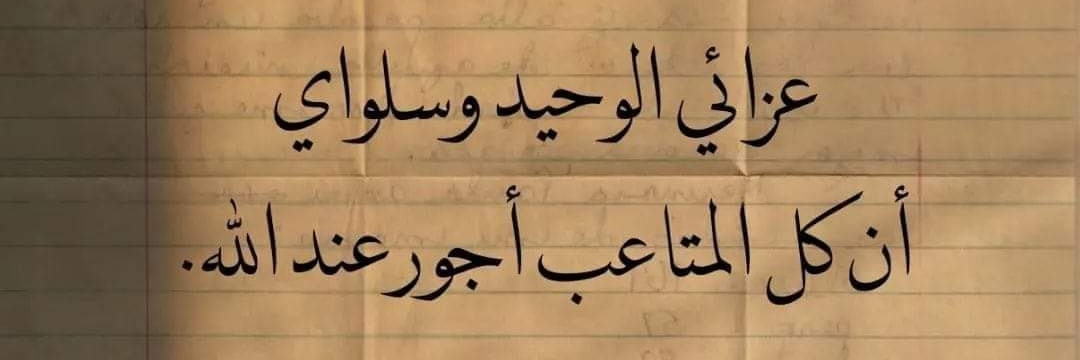 عزائي الوحيد وسلواي
أن كل المتاعب أجور عند الله.